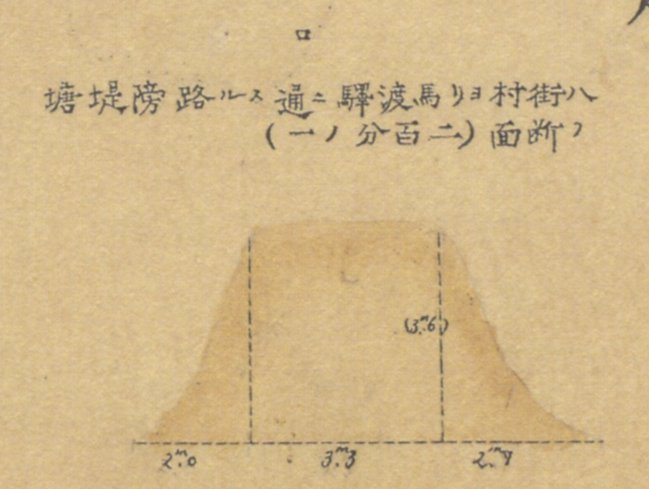 ロ
八街村ヨリ馬渡驛ニ通スル路傍堤塘
ノ断面(二百分ノ一)
(3.ᵐ6)
2.ᵐ0 3.ᵐ3 2.ᵐ9